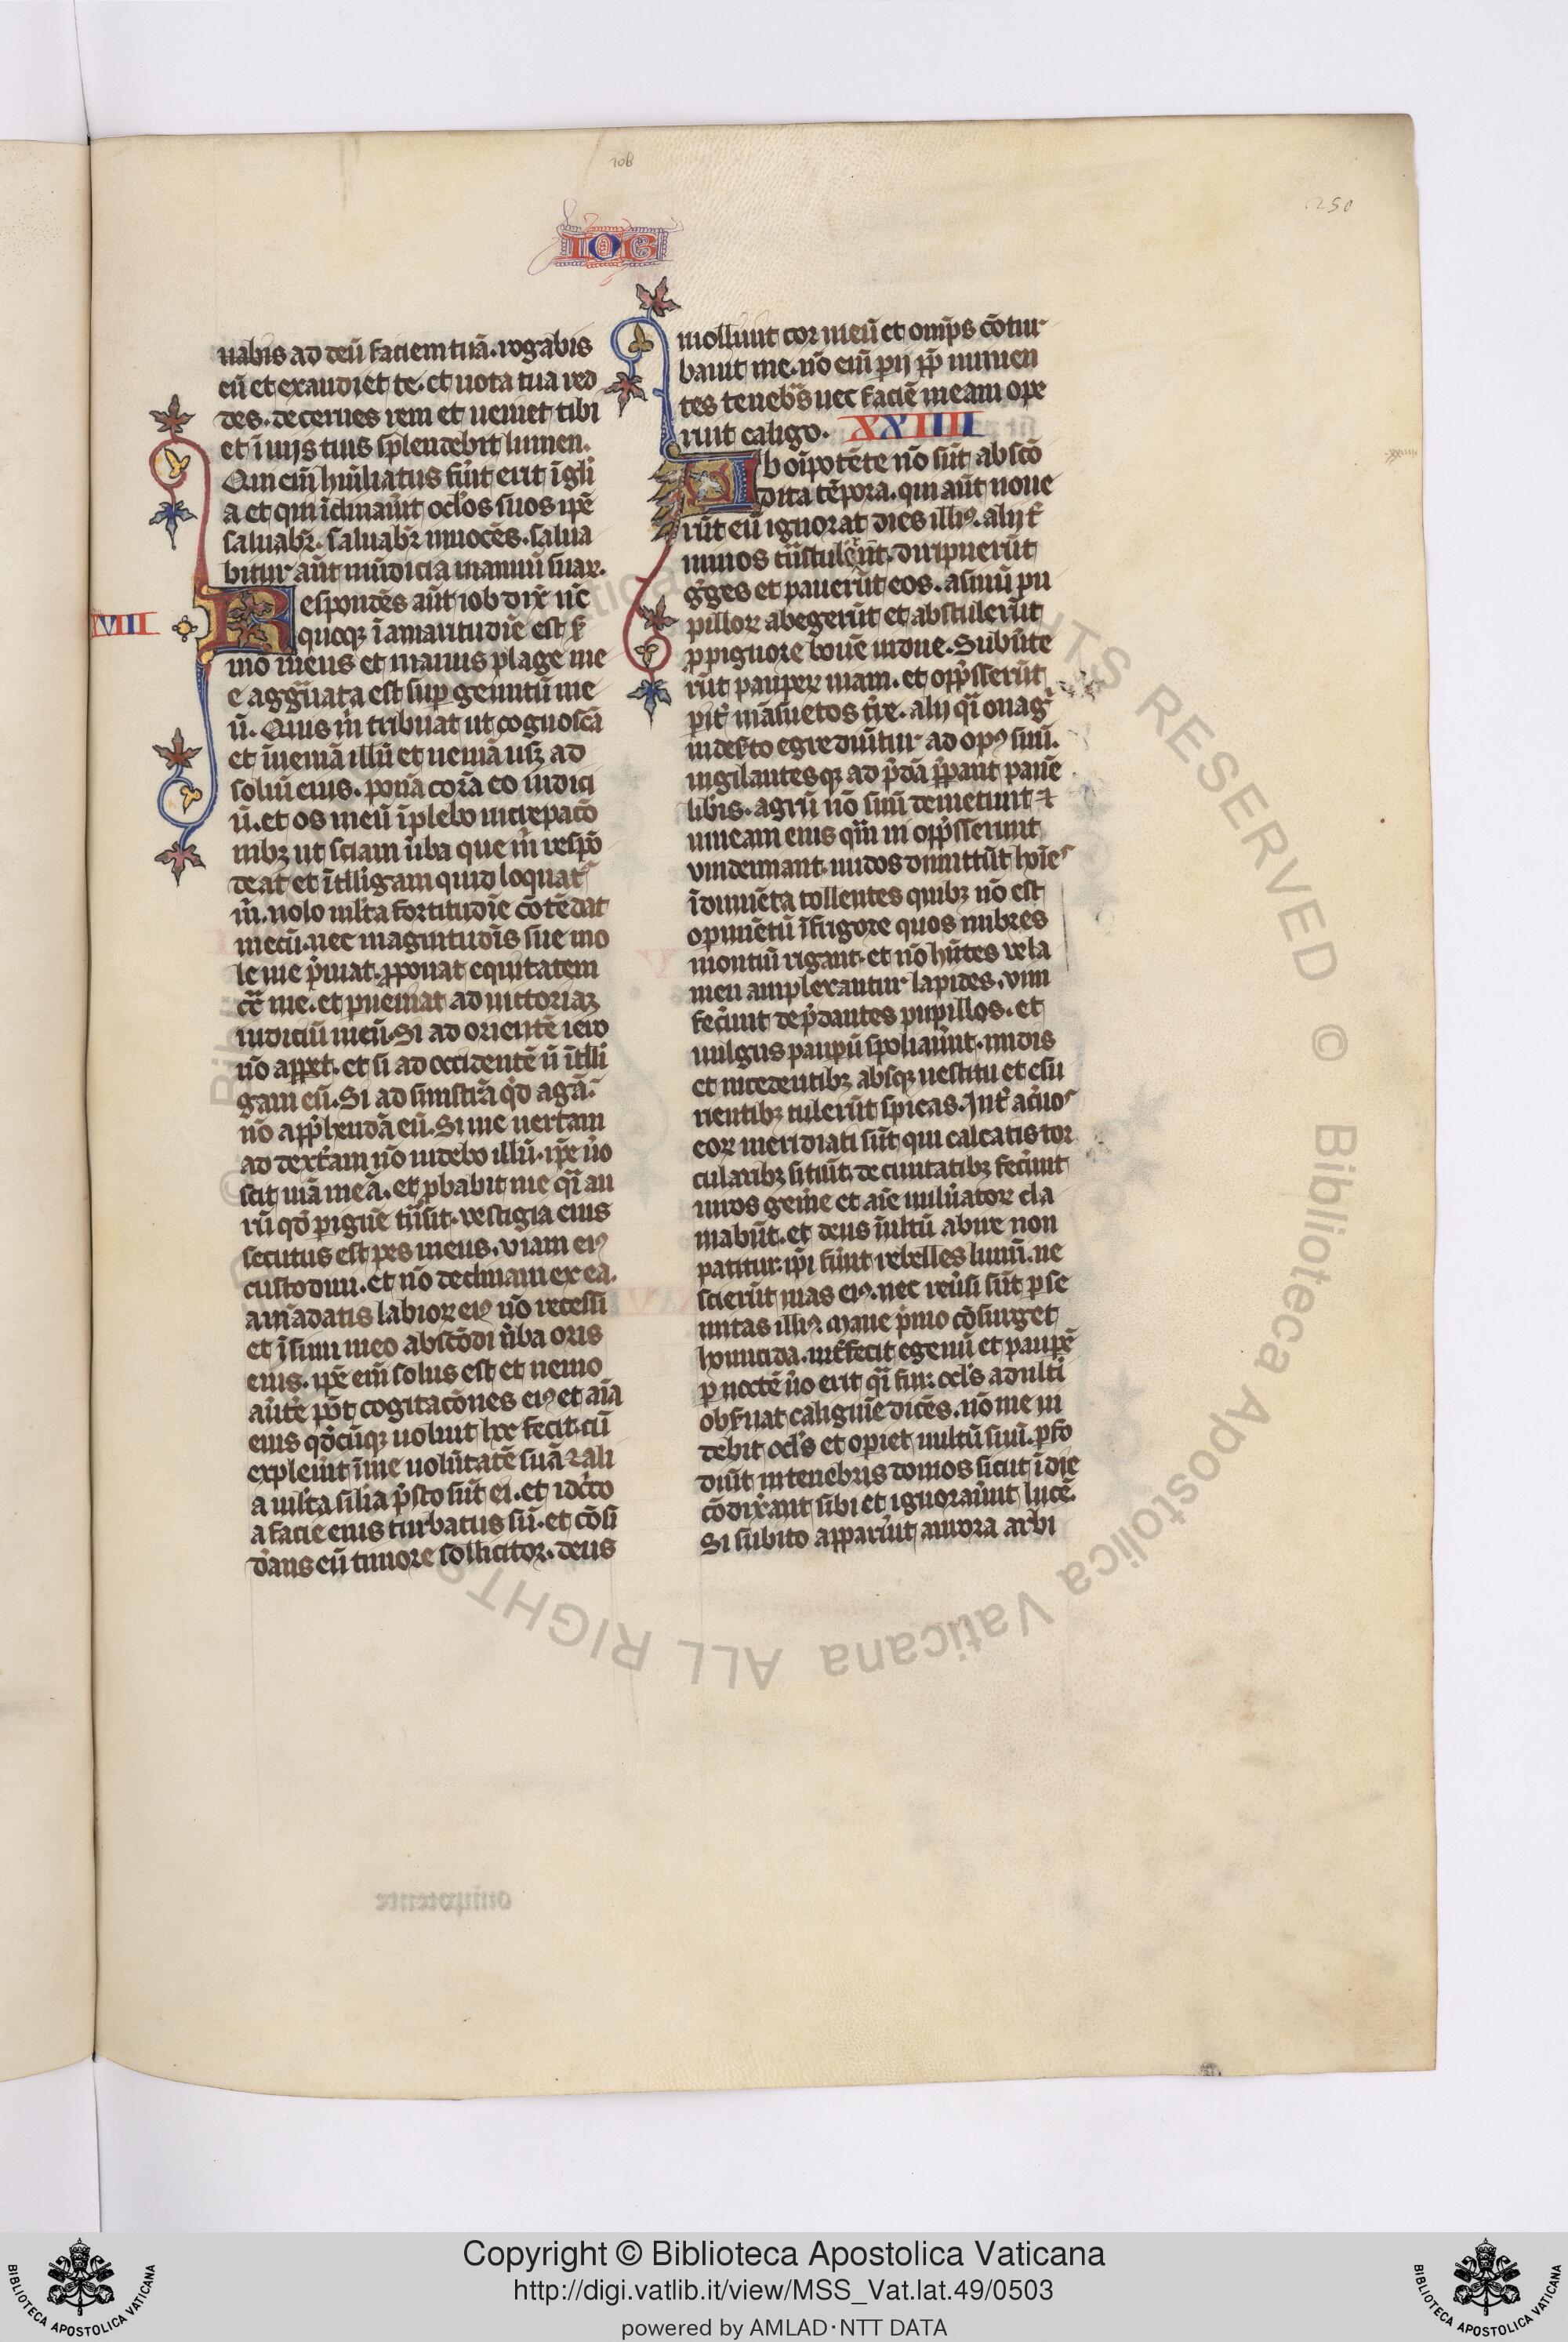 Job
250
IOB
uabis ad deū faciem tuā. rogabis
eū et exaudiet te. et uota tua red
des. decernes rem et ueniet tibi
et ī uijs tuis splendebit lumen.
Qui eni᷑ hūiliatus fu̾it erit ī gl̾i
a et qui īclinau̾it ocl̾os suos ip̄e
saluabr̄. saluabr̄ innocēs. salua
bitur aūt mūdicia manuū suaꝝ.
XXIII
Respondēs aūt iob dix̄ nc̄
quoqꝫ ī amaritudīe est s̾
mo meus et manus plage me
e agg̾uata est sup̲ gemitū me
ū. Quis m̾ tribuat ut cognoscā
et īueniā illū et ueniā usqꝫ ad
soliū eius. ponā corā eo iudici
ū. et os meū īplebo increpacō
nibꝫ ut sciam u̾ba que m̾ respō
deat et ītlligam quid loquat᷑
m̾. nolo ml̾ta fortitudīe cōtēdat
mecū. nec magnitudīs sue mo
le me p̾mat. ꝓponat equitatem
cō̾ me. et ꝑueniat ad uictoriaꝫ
iudiciū meū. Si ad orientē iero
nō apꝑet. et si ad occidentē n̄ ītlli
gam eū. Si ad sinistrā qd̾ agā.
nō app̾hendā eū. Si me uertam
ad dext̾am nō uidebo illū. ip̄e u̾o
scit uiā meā. et ꝓbabit me q̾i au
rū qd̾ ꝑ ignē t̾nsit. vestigia eius
secutus est pes meus. viam eiꝰ
custodiui. et nō declinaui ex ea.
a mādatis labioꝝ eiꝰ nō recessi
et ī sinu meo abscōdi u̾ba oris
eius. ip̄e eni᷑ solus est et nemo
au̾te̾ pōt cogitacōnes eiꝰ et aīa
eius qd̾cūqꝫ uoluit hoc fecit. cū
expleu̾it ī me uolūtatē suā ⁊ ali
a ml̾ta sil̾ia p̾sto sūt ei. et idc̾co
a facie eius turbatus sū. et cōsi
d̾ans eū timore sollicitor. deus
molliuit cor meū et omp̄s cōtur
bauit me. nō eni᷑ ꝑij ꝓp̄ iminen
tes teneb̾s nec faciē meam ope
ruit caligo. XXIIII
Ab oīpotēte nō sūt abscō
dita tēpora. qui aūt noue
rūt eū ignorāt dies illiꝰ. alij t̾
minos t̾nstulerūt. diripuerūt
g̾ges et pauerūt eos. asinū pu
pilloꝝ abegerūt et abstulerūt
ꝓ pignore bouē uidue. Subu̾te
rūt pauꝑꝝ uiam. et opp̾sserūt
pit̾ māsuetos t̾re. alij q̾i onag̾
in des̾to egrediūtur ad opꝰ suū.
uigilantesqꝫ ad p̾dā p̾parant panē
lib̾is. agrū nō suū demetunt ⁊
uineam eius quē ui opp̾sserunt
vindemiant. nudos dimittūt hoīes
īdumēta tollentes quibꝫ nō est
oꝑimētū ī frigore quos imbres
montiū rigant. et nō hn̄tes vela
men amplexantur lapides. vim
fec̾unt dep̾dantes pupillos. et
uulgus pauꝑū spoliau̾unt. nudis
et incedentibꝫ absqꝫ uestitu et esu
rientibꝫ tulerūt spicas. Int̾ ac̾uos
eoꝝ meridiati sūt qui calcatis tor
cularibꝫ sitiūt. de ciuitatibꝫ fec̾unt
uiros gem̾e et aīe uuln̾atoꝝ cla
mabūt. et deus īultū abire non
patitur. ip̄i fu̾unt rebelles lumī. ne
scierūt uias eiꝰ. nec reu̾si sūt ꝑ se
mitas illiꝰ. Mane p̾mo cōsurget
homicida. int̾fecit egenū et pauꝑē
ꝑ noctē u̾o erit q̾i fur. ocl̾s adulti
obs̾uat caliginē dicēs. nō me ui
debit ocl̾s et oꝑiet uultū suū. ꝑfo
diūt in tenebris domos sicut ī die
cōdix̾ant sibi et ignorau̾unt lucē.
Si subito apparu̾it aurora arb̾i
Copyright © Biblioteca Apostolica Vaticana
http://digi.vatlib.it/view/MSS_Vat.lat.49/0503
powered by AMLAD·NTT DATA